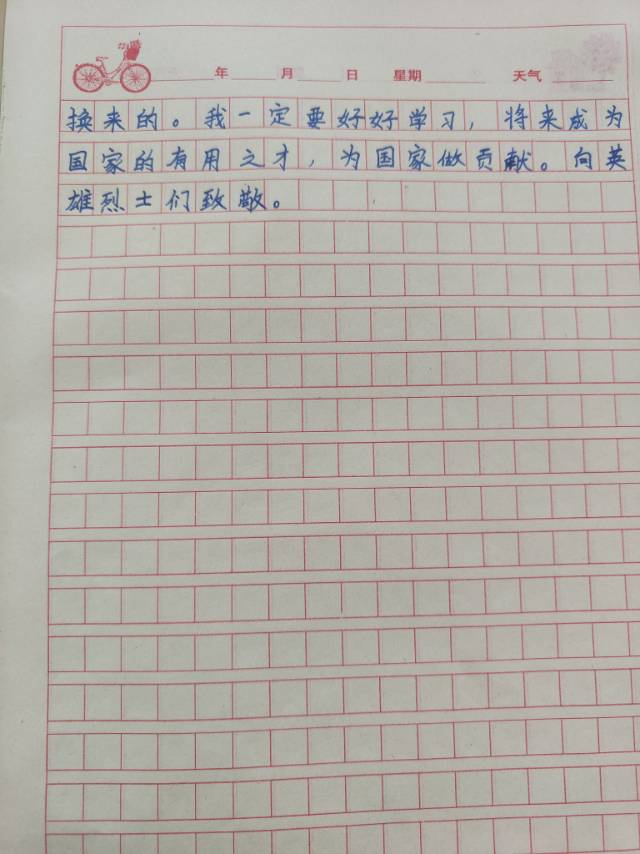 年 月 日 星期 天气
换来的。我一定要好好学习，将来成为
国家的有用之才，为国家做贡献。向英
雄烈士们致敬。